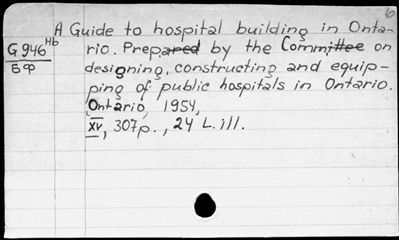 6
A Guide to hospital building in Onta-
G 946 Hb rio. Prepared by the Committee on
5φ designing, constructing and equip-
ping of public hospitals in Ontario.
Ontario, 1954,
XV, 307p., 24 L. ill.